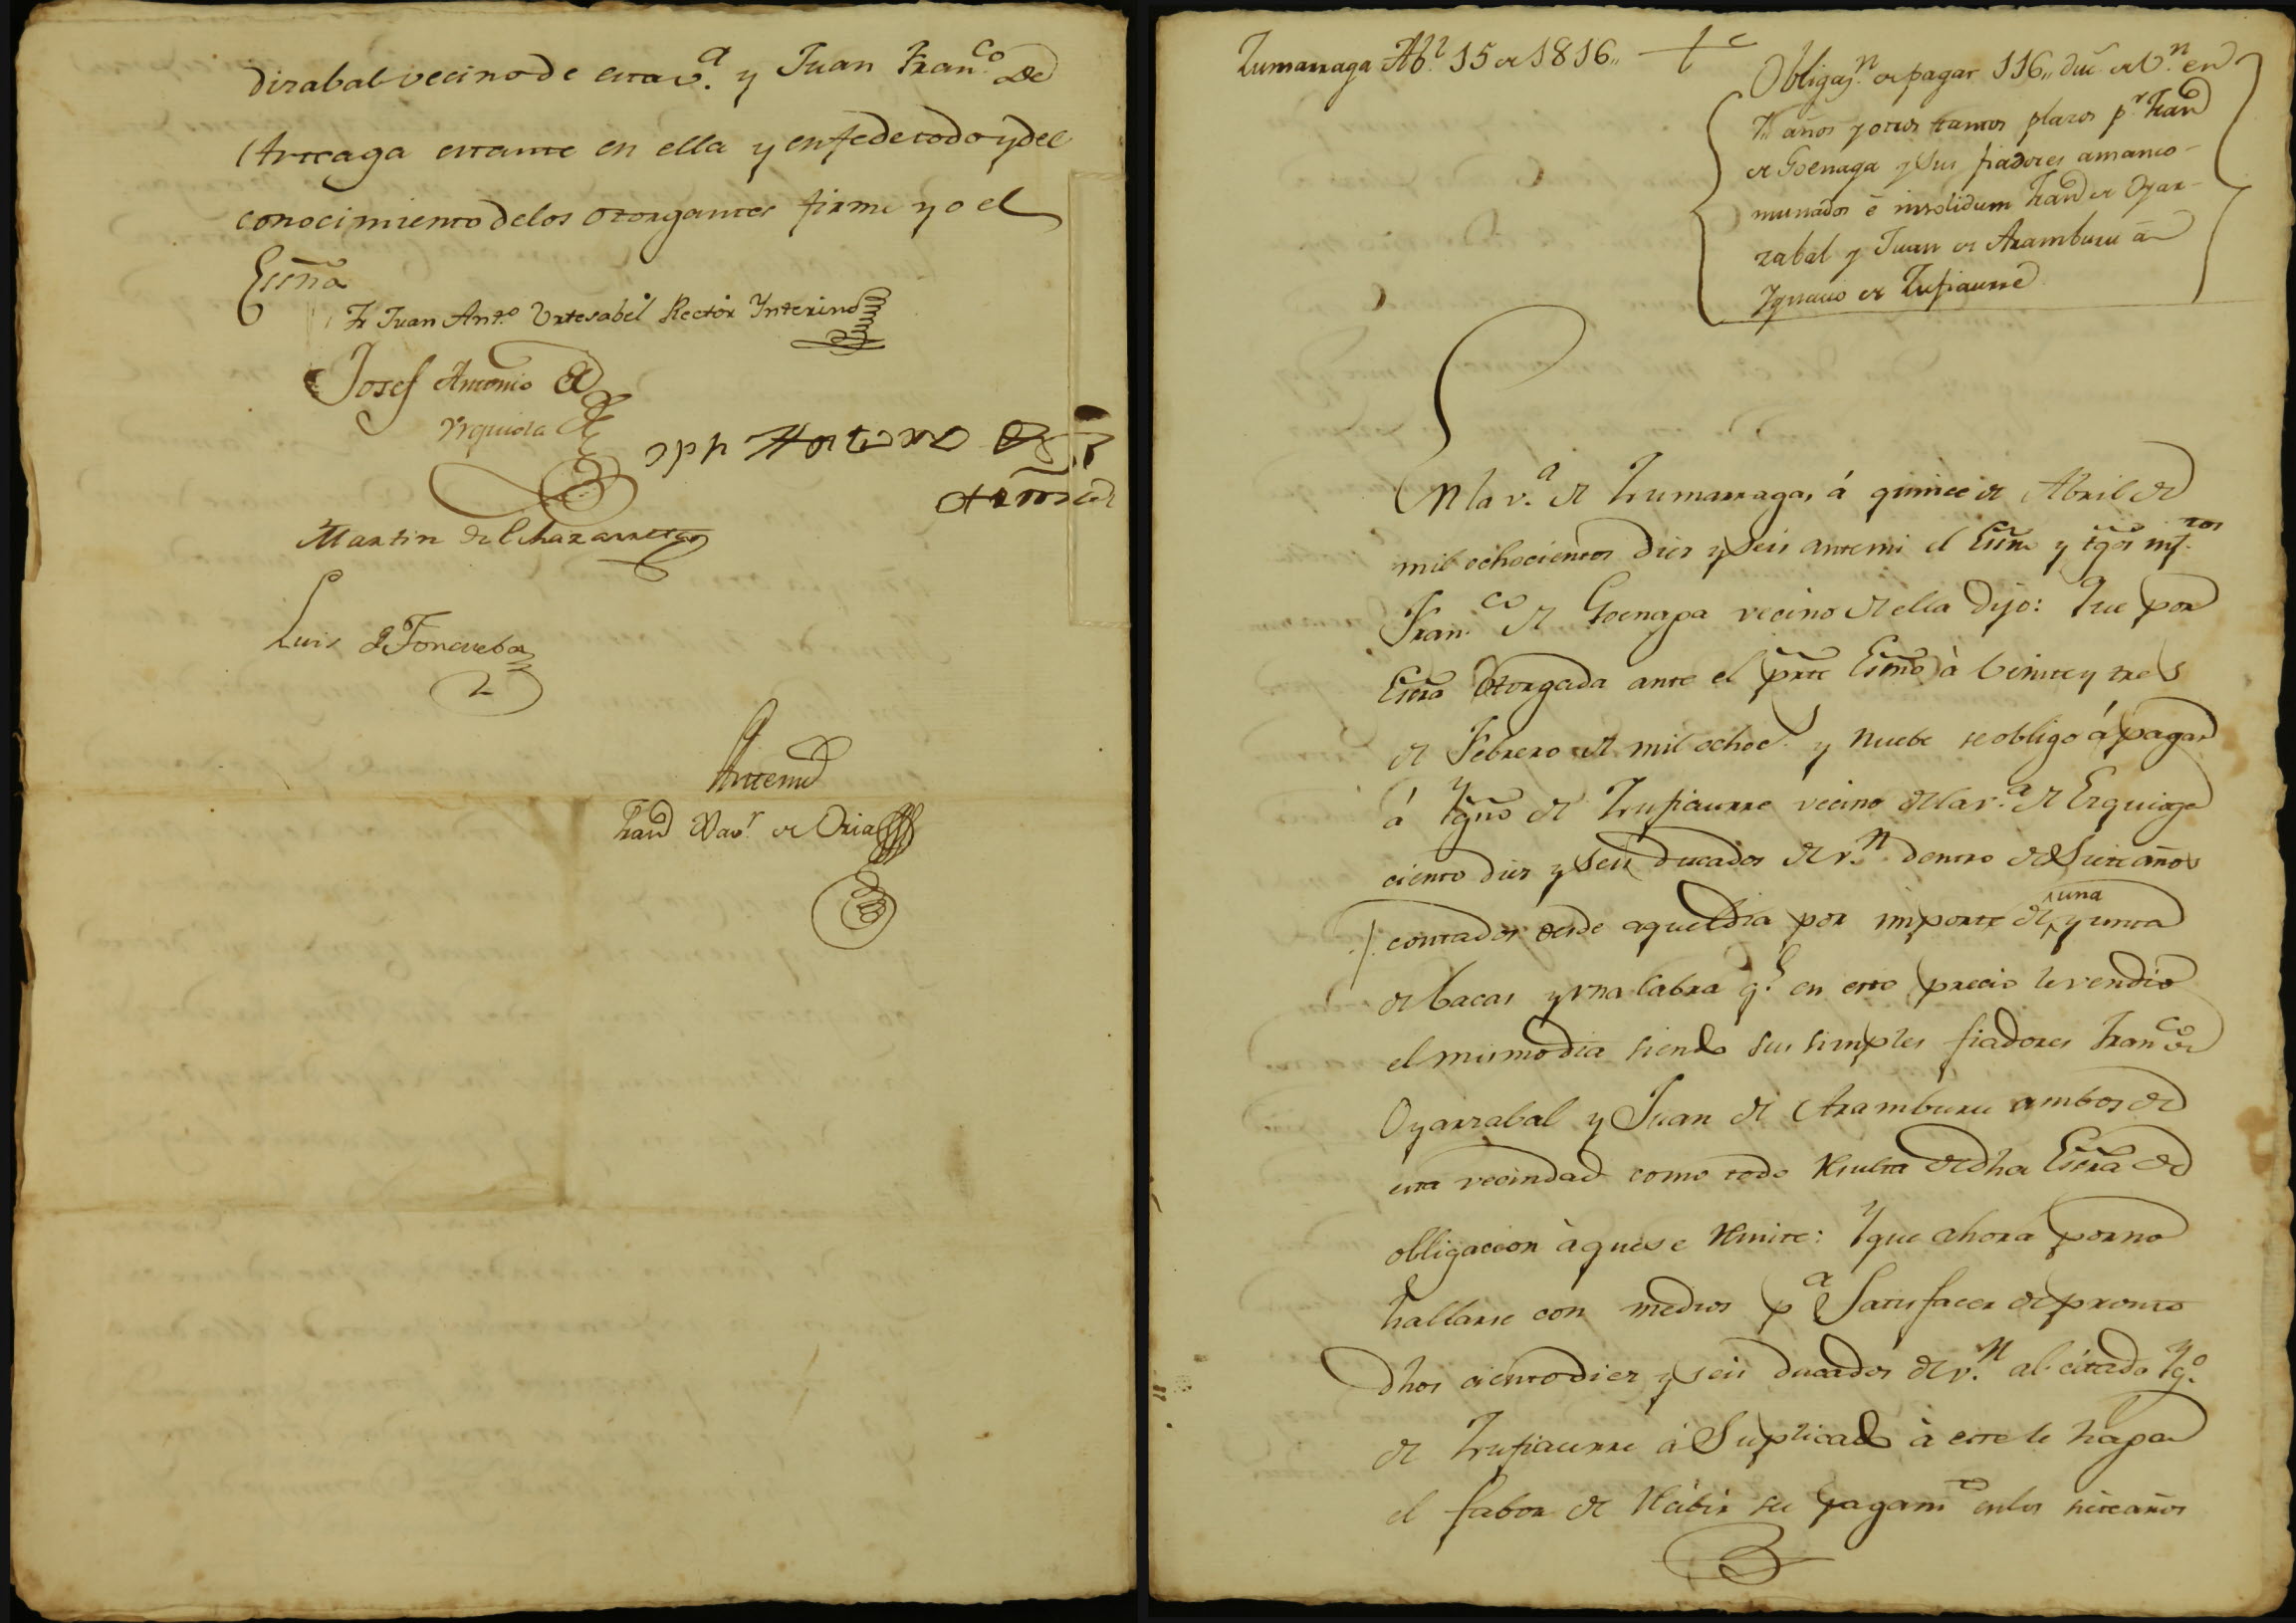 dizabal vecino de esta v.a y Juan Fran.co de
Arteaga estante en ella y en fe de todo y del
conocimiento de los otorgantes firme yo el
Essno
Fr Juan Ant.o Urtesabel Rector Ynterino
Josef Antonio de
Urquiola
Joseph Antonio de
Martin de Echazarreta
Luis de Fonceveba
Antemi
Fran.co Xav.r de Oria
Zumarraga Ab.l 15 de 1816,,
Obligaz.n de pagar 116,, duc.s de V.n en
7,, años y otros tantos plazos p.r Fran.co
de Goenaga y sus fiadores amanco-
munados é insolidum Fran.co de Oyar-
zabal y Juan de Aramburu á
Ygnacio de Zufiaurre
En la v.a de Zumarraga, á quince de Abril de
mil ochocientos diez y seis ante mi el Essno y tgos inf.tos
Fran.co de Goenaga vecino de ella Dijo: Que por
Essra otorgada ante el prte Essno à beinte y tres
de Febrero de mil ochoc.s y nuebe se obligo á pagar
á Ygno de Zufiaurre vecino de la v.a de Ezquioga
ciento diez y seis ducados de v.n dentro de siete años
contados desde aquel dia por importe de una yunta
de bacas y una cabra q.e en este precio le vendió
el mismo dia siendo sus simples fiadores Fran.co de
Oyarzabal y Juan de Aramburu ambos de
esta vecindad como todo resulta de dha Essra de
obligacion à que se remite: Y que ahora por no
hallarse con medios p.a satisfacer de pronto
dhos ciento diez y seis ducados de v.n al citado Yg.o
de Zufiaurre á suplicado à este le haga
el fabor de recibir su pagam.to en los siete años